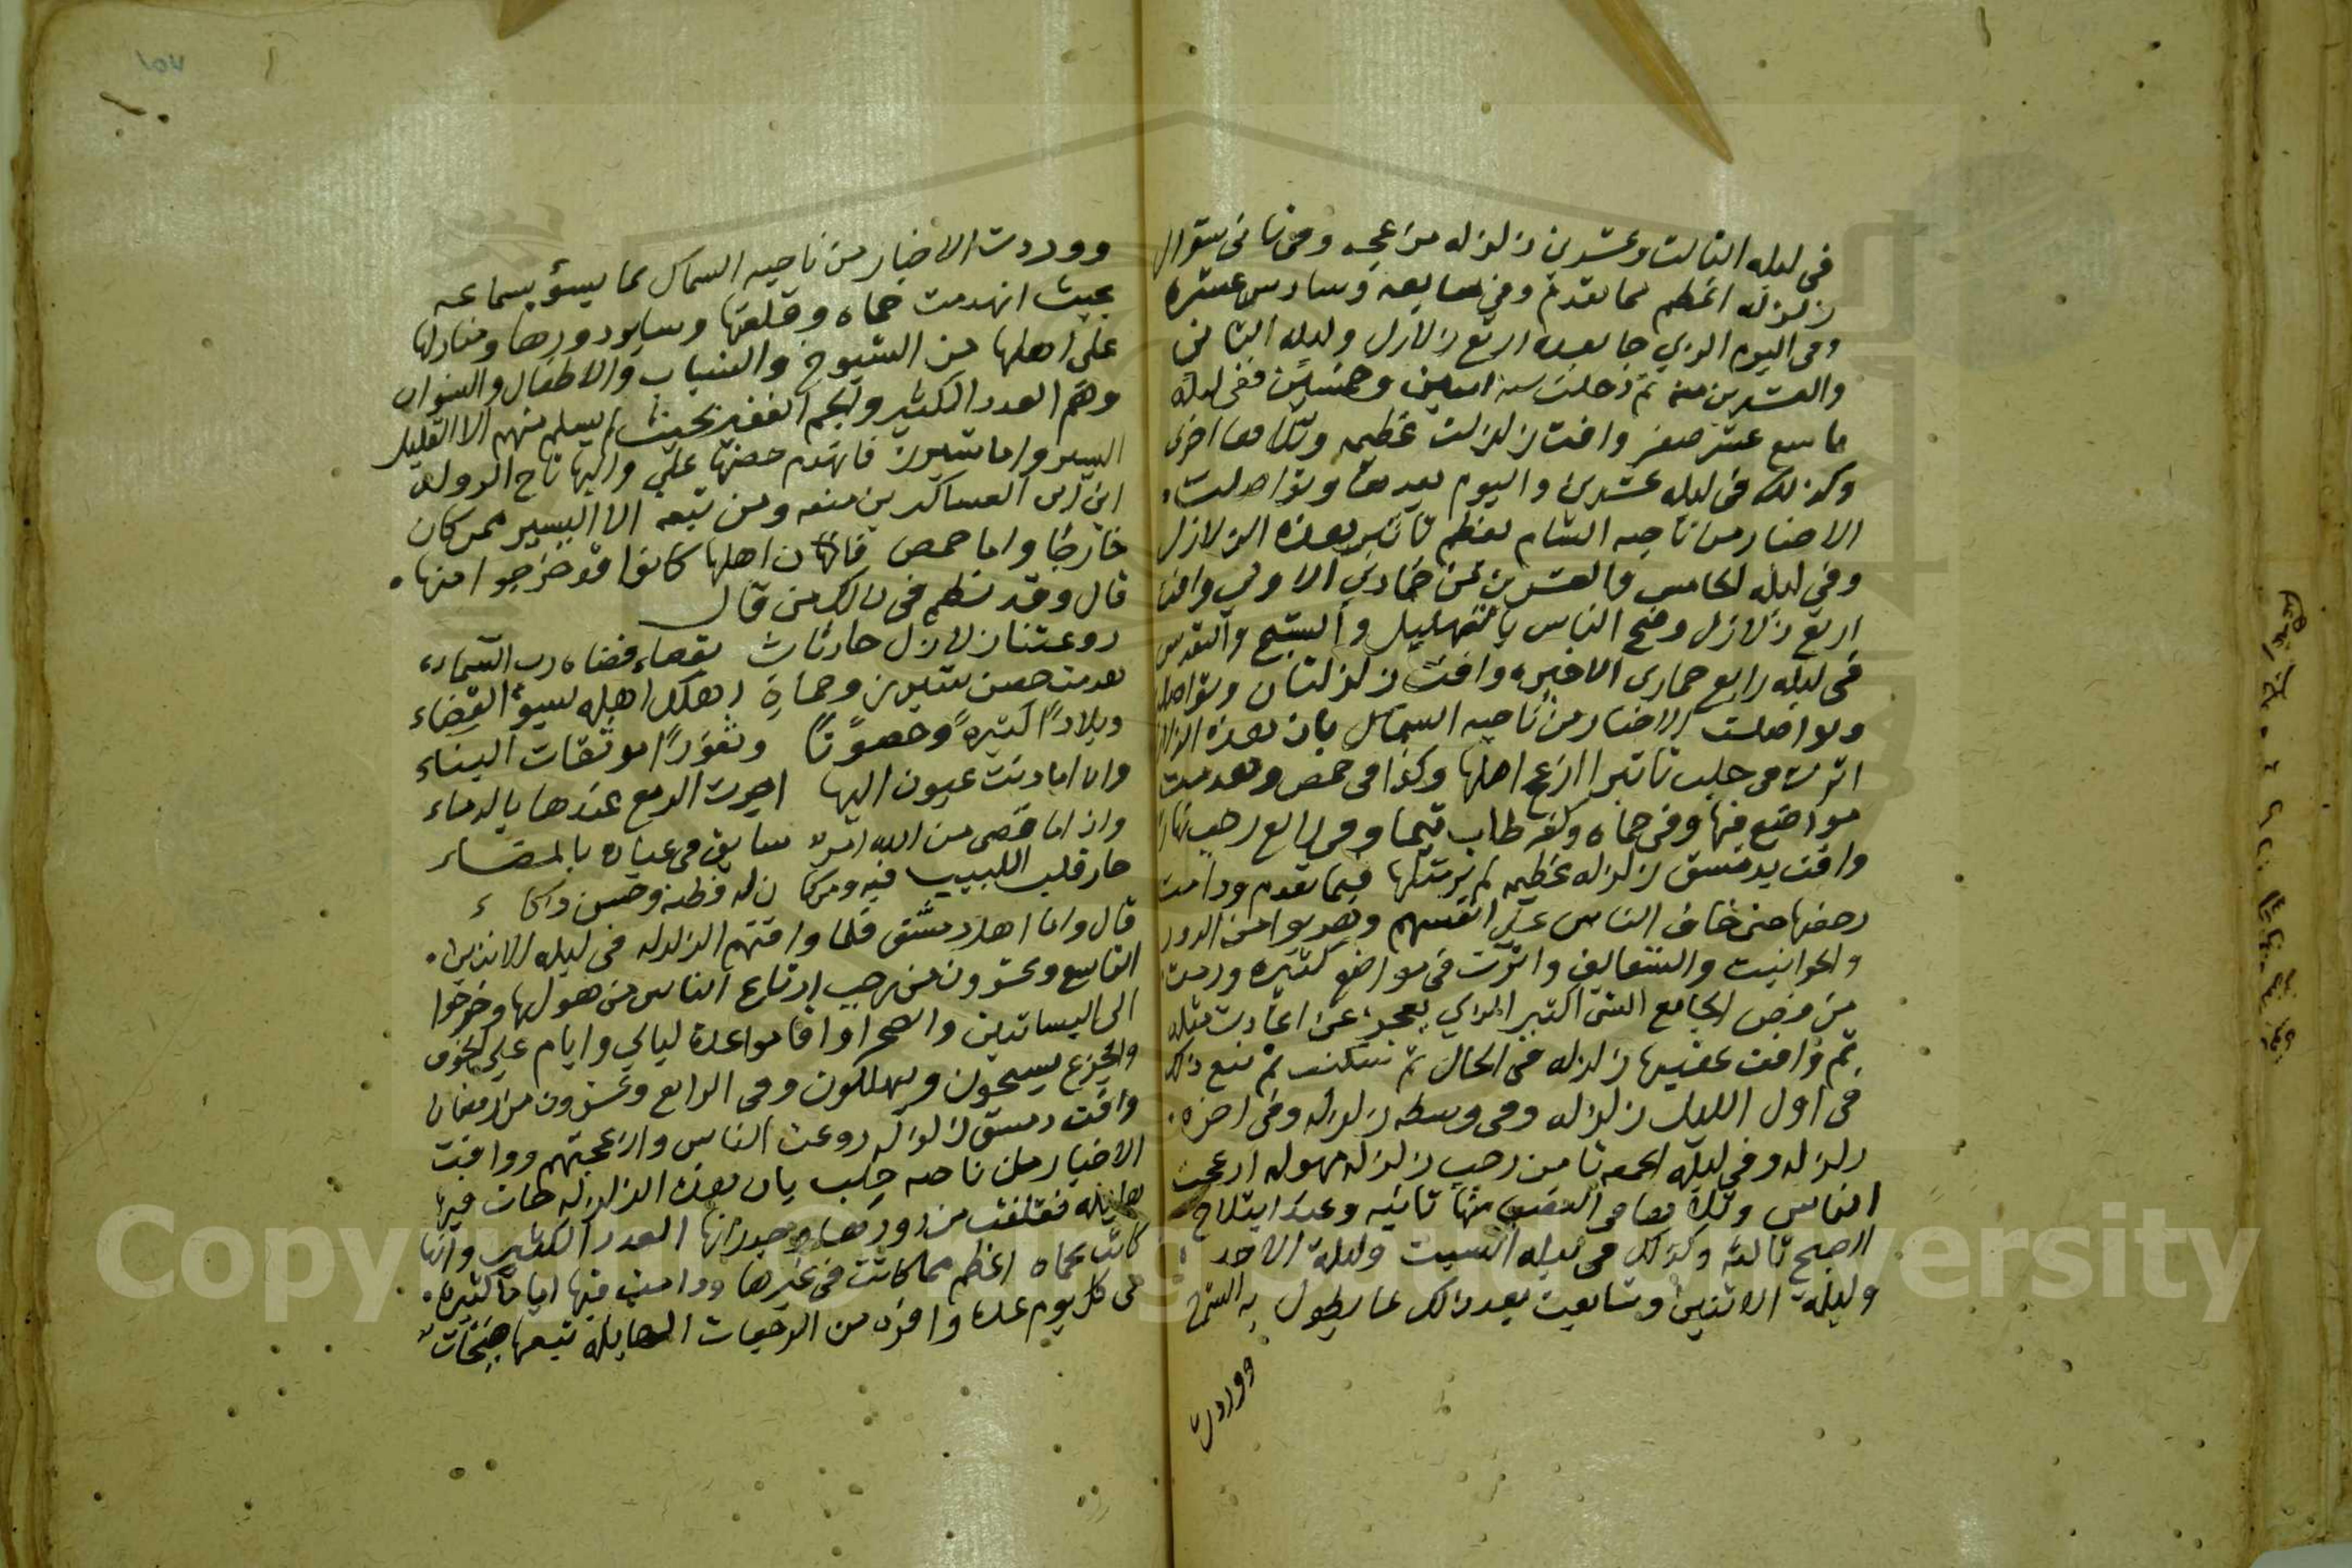 فى ليله الثالث وعشرين زلزله مزعجه وفى ثانى شوال
زلزله اعظم مما تقدم وفى سابعه وسادس عشره
وفى اليوم الدي جا بعده اربع زلازل وليله الثانى
والعشرين منه ثم دخلت سنه اثنين وخمسين ففى ليله
تاسع عشر صفر وافت زلزلت عظيمه وتلاها اخرى
وكذلك فى ليله عشرين واليوم بعدها وتواصلت
الاخبار من ناحيه الشام بعظم تاثير هذه الزلازل
وفى ليله الخامس والعشرين من جمادي الاولي وافت
اربع زلازل وضج الناس بالتهليل والتسبيح والتقديس
فى ليله رابع جمادى الاخيره وافت زلزلتان وتواصل
وتواصلت الاخبار من ناحيه الشمال بان هذه الزلازل
اثرت فى حلب تاثيرا ازعج اهلها وكذا فى حمص وهدمت
مواضع فيها وفى حماه وكفر طاب وفى رابع رجب نهارا
وافت بدمشق زلزله عظيمه لم ير مثلها فيما تقدم ودامت
رجفتها حتى خاف الناس على انفسهم وهربوا من الدور
والحوانيت والسقايف واثرت فى مواضع كثيره ورمت
من فص الجامع الشى الكثير الدي يعجز عن اعادت مثله
ثم وافت عقيبها زلزله فى الحال ثم سكنت ثم تبع ذلك
فى اول الليل زلزله وفى وسطه زلزله وفى اخره
زلزله وفى ليله الجمعه ثامن رجب زلزله مهوله ازعجت
الناس وتلاها فى النصف منها ثانيه وعند ابتلاج
الصبح ثالثه وكذلك فى ليله السبت وليله الاحد
وليلة الاثنين وتتابعت بعد ذلك بما يطول به الشرح
ووردت
ووردت الاخبار من ناحيه الشمال بما يسؤ سماعه
بحيث انهدمت حماه وقلعتها وساير دورها ومنازلها
على اهلها من الشيوخ والشباب والاطفال والنسوان
وهم العدد الكثير والجم الغفير بحيث لم يسلم منهم الا القليل
اليسير واما شيزر فانهدم حصنها علي واليها تاج الدوله
ابن ابى العساكر بن منقد ومن تبعه الا اليسير ممن كان
خارجا واما حمص فان اهلها كانوا قد خرجوا منها
قال وقد نظم فى ذلك من قال
روعتنا زلازل حادثات بقضاء قضاه رب السماء
هدمت حصن شيزر وحماة اهلكت اهله بسوء القضاء
وبلادا كثيرة وحصونا وثغورا موثقات البناء
واذا ما رنت عيون اليها اجرت الدمع عندها بالدماء
واذا ما قضى من الله امر سابق فى عباده بالمضاء
حار قلب اللبيب فيه ومن كان له فطنه وحسن ذكاء
قال واما اهل دمشق فلما وافتهم الزلزله فى ليله الاثنين
التاسع وعشرون من رجب ارتاع الناس من هولها وخرجوا
الى البساتين والصحرا واقاموا عدة ليالي وايام على الخوف
والجزع يسبحون ويهللون وفى الرابع وعشرون من رمضان
وافت دمشق زلزله روعت الناس وازعجتهم ووافت
الاخبار من ناحيه حلب بان هذه الزلزله كانت فيها
هايله فقلقلت من دورها وجدرانها العدد الكثير وانها
كانت بحماه اعظم مما كانت فى غيرها ودامت فيها اياما كثيره
فى كل يوم عدة وافرة من الرجفات الهايله تتبعها صيحات